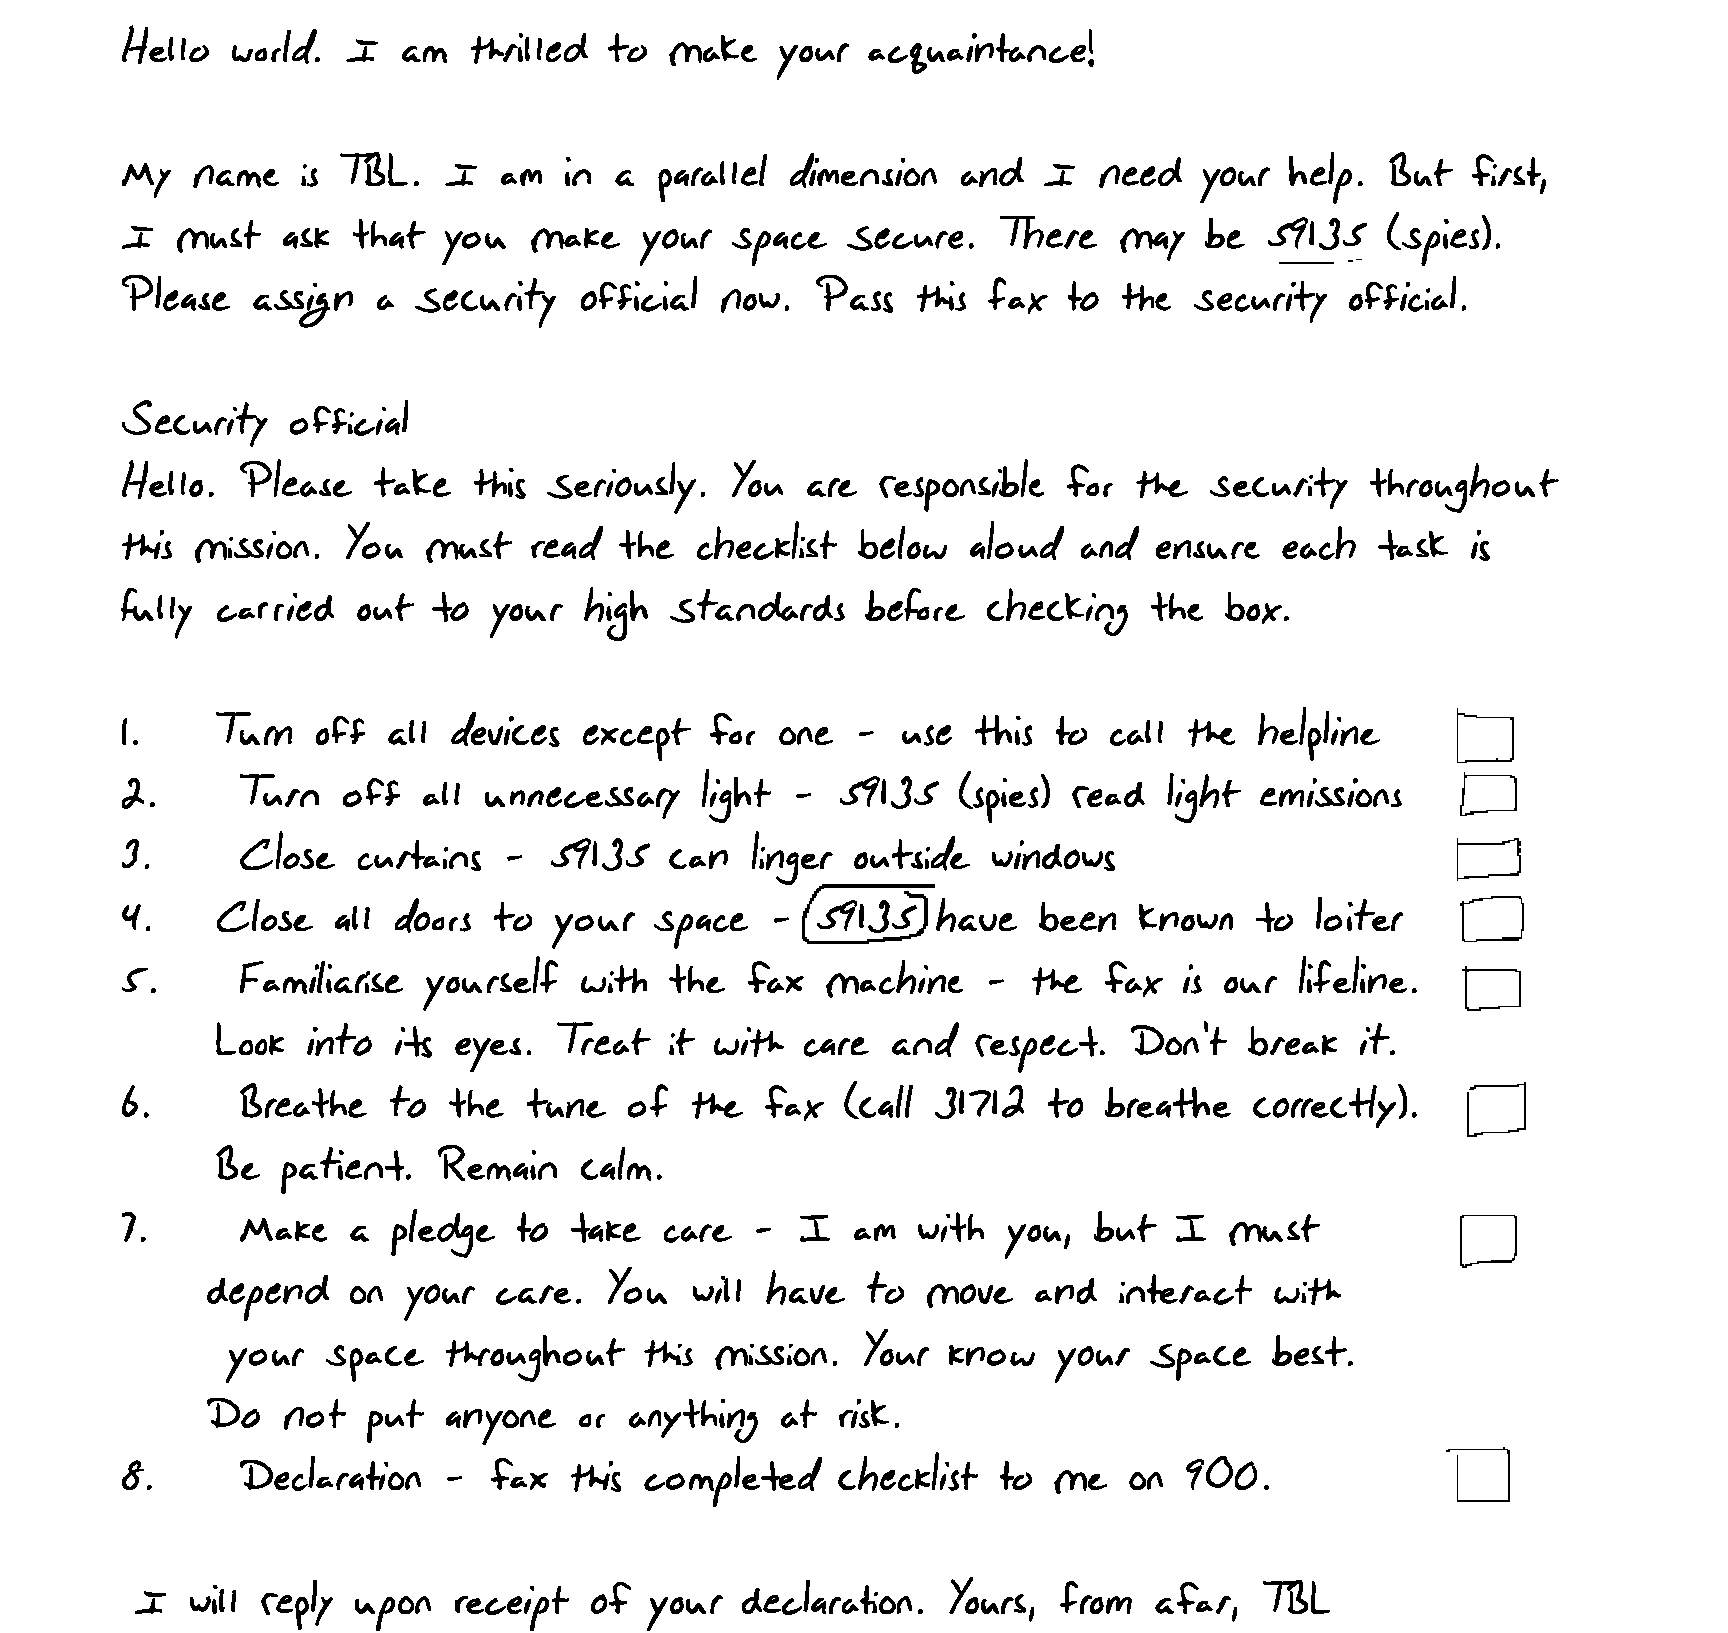 Hello world. I am thrilled to make your acquaintance!
My name is TBL. I am in a parallel dimension and I need your help. But first,
I must ask that you make your space secure. There may be 59135 (spies).
Please assign a security official now. Pass this fax to the security official.
Security official
Hello. Please take this seriously. You are responsible for the security throughout
this mission. You must read the checklist below aloud and ensure each task is
fully carried out to your high standards before checking the box.
1. Turn off all devices except for one - use this to call the helpline
2. Turn off all unnecessary light - 59135 (spies) read light emissions
3. Close curtains - 59135 can linger outside windows
4. Close all doors to your space - 59135 have been known to loiter
5. Familiarise yourself with the fax machine - the fax is our lifeline.
Look into its eyes. Treat it with care and respect. Don't break it.
6. Breathe to the tune of the fax (call 31712 to breathe correctly).
Be patient. Remain calm.
7. Make a pledge to take care - I am with you, but I must
depend on your care. You will have to move and interact with
your space throughout this mission. Your know your space best.
Do not put anyone or anything at risk.
8. Declaration - fax this completed checklist to me on 900.
I will reply upon receipt of your declaration. Yours, from afar, TBL